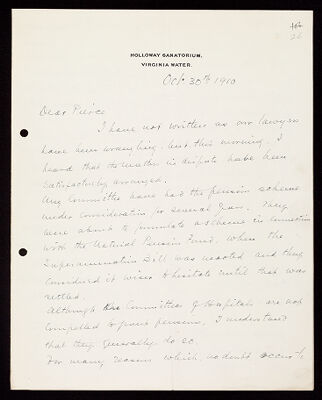 26
HOLLOWAY SANATORIUM,
VIRGINIA WATER.
Oct 30th 1910
Dear Pierce
I have not written as our lawyers
have been wrangling but this morning I
heard that the matters in dispute have been
satisfactorily arranged.
My Committee have had the pension scheme
under consideration for several years. They
were about to formulate a scheme in connection
with the National Pension Fund. When the
Superannuation Bill was mooted and they
considered it wiser to hesitate until that was
settled.
Although the Committees of Hospitals are not
compelled to grant pensions, I understand
that they generally do so.
For many reasons which no doubt occur to